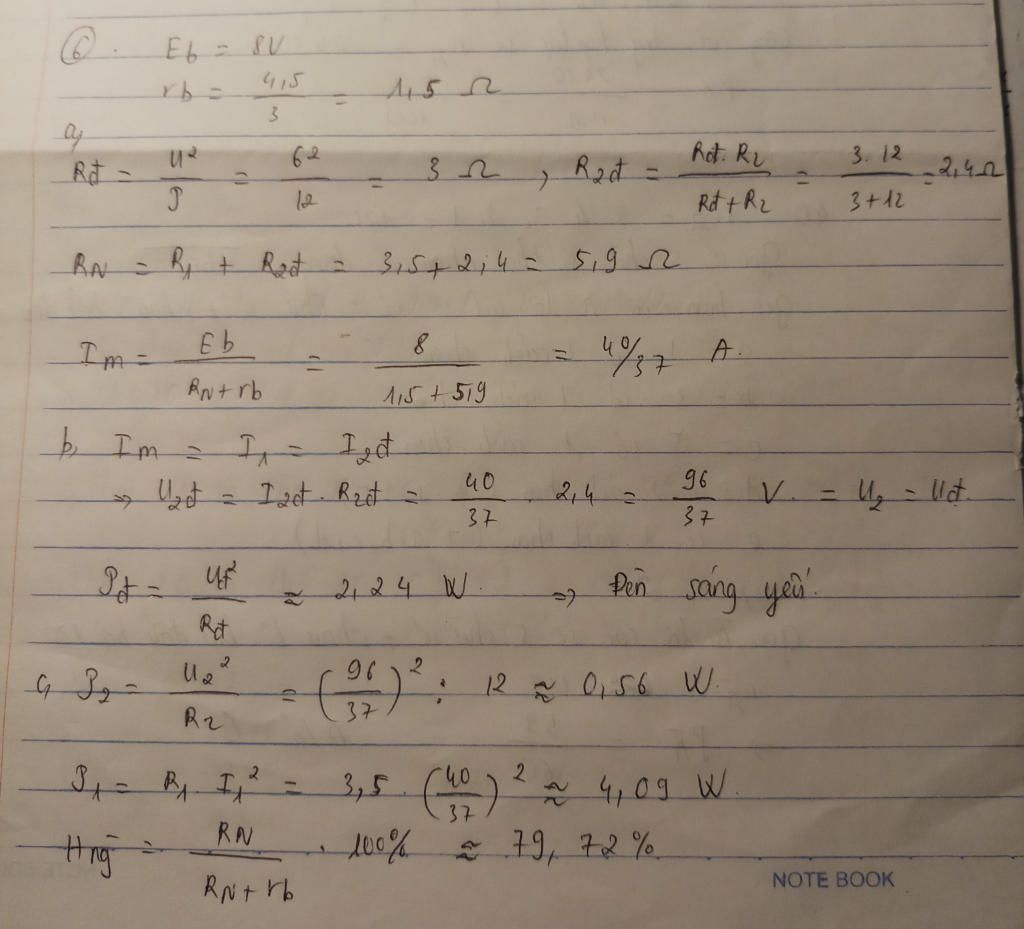 ⑥. Eb = 8V
rb = 4,5/3 = 1,5 Ω
a,
Rđ = U²/P = 6²/12 = 3 Ω , R2đ = Rđ.R2/Rđ+R2 = 3.12/3+12 = 2,4Ω
RN = R1 + R2đ = 3,5+2,4 = 5,9 Ω
Im = Eb/RN+rb = 8/1,5+5,9 = 40/37 A.
b, Im = I1 = I2đ
⇒ U2đ = I2đ.R2đ = 40/37 . 2,4 = 96/37 V. = U2 = Uđ.
Pđ = Uđ²/Rđ ≈ 2,24 W. ⇒ Đèn sáng yếu.
c, P2 = U2²/R2 = (96/37)² : 12 ≈ 0,56 W.
P1 = R1.I1² = 3,5.(40/37)² ≈ 4,09 W.
Hng = RN/RN+rb . 100% ≈ 79,72%
NOTE BOOK